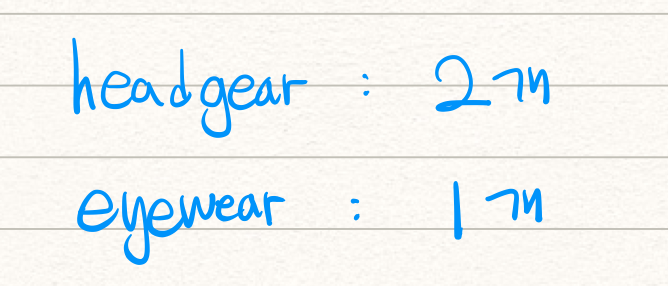 headgear : 2개
eyewear : 1개